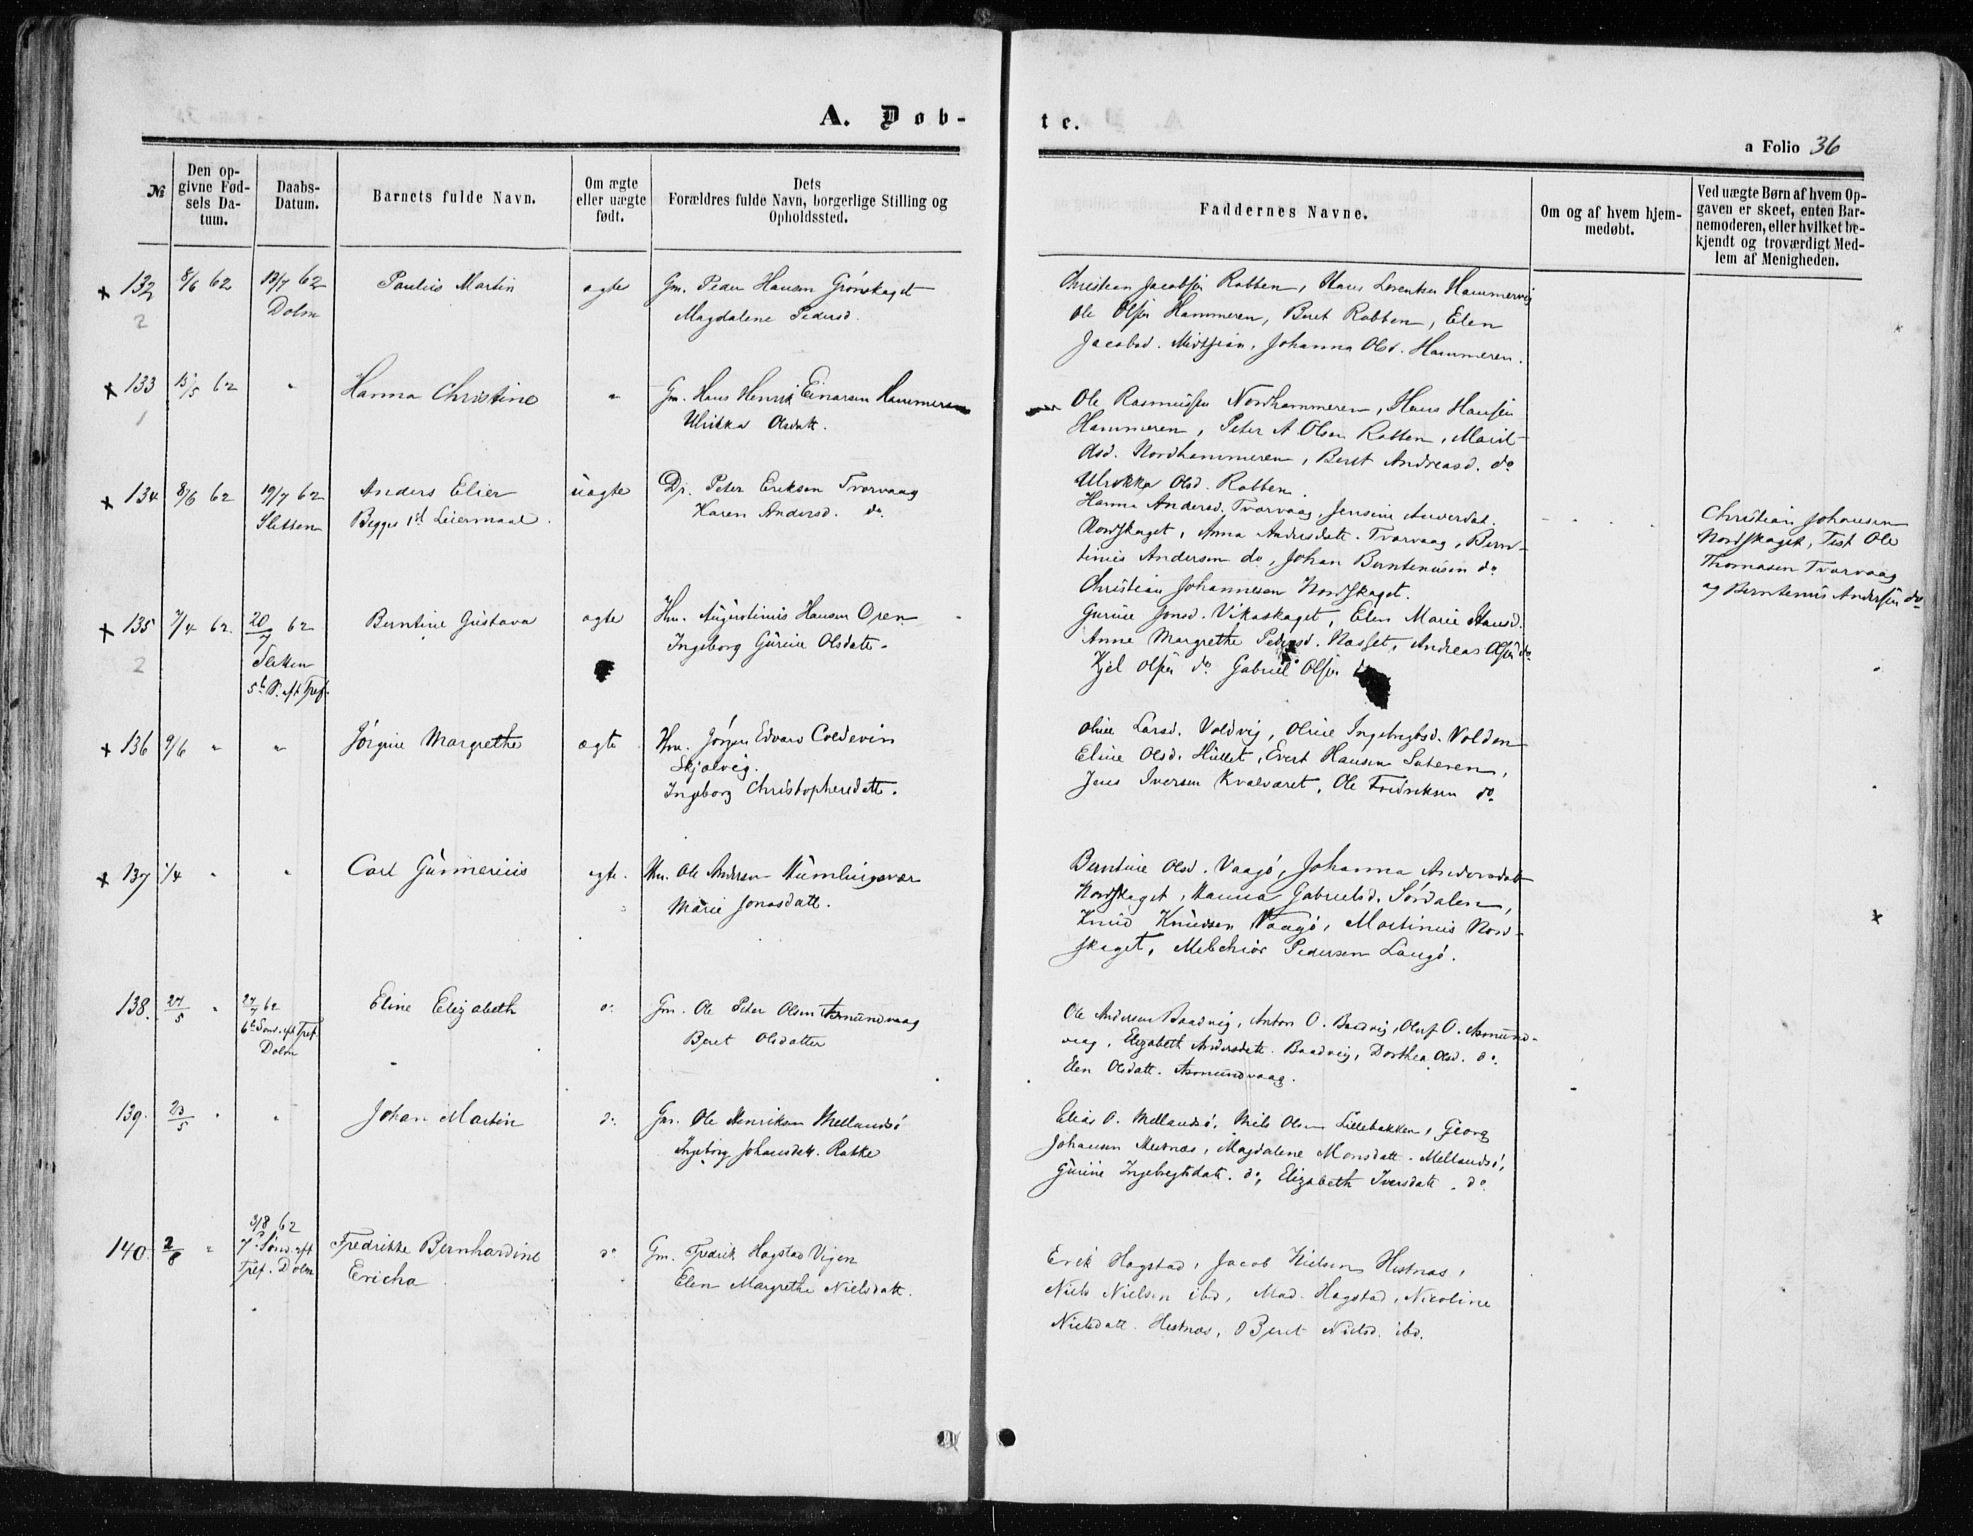 A. Døb-
te.
a Folio 36
№
Den op-
givne Fød-
sels Da-
tum.
Daabs-
Datum.
Barnets fulde Navn.
Om ægte
eller uægte
født.
Dets
Forældres fulde Navn, borgerlige Stilling og
Opholdssted.
Faddernes Navne.
Om og af hvem hjem-
medøbt.
Ved uægte Børn af hvem Op-
gaven er skeet, enten Bar-
nemoderen, eller hvilket be-
kjendt og troværdigt Med-
lem af Menigheden.
x 132 8/6 62 13/7 62 Paulus Martin ægte Gm. Peder Hansen Grønskaget
2 Dolm Magdalene Pedersd.
Christian Jacobsen Rabben, Hans Lorentsen Hammervig
Ole Olsen Hammeren, Beret Rabben, Elen
Jacobsd. Johanna Olsd. Hammeren.
x 133 15/5 62 " Hanna Christine " Gm. Hans Henrik Einarsen Hammeren
1 Ulrikka Olsdatt.
Ole Rasmussen Nordhammeren, Hans Hansen
Hammeren, Peter A Olsen Rabben, Marit
Olsd. Nordhammeren, Beret Andreasd. do
Ulrikka Olsd. Rabben.
x 134 8/6 62 19/7 62 Anders Elier uægte Dr. Peter Eriksen Tvervaag
Sletten Begges 1st Leiermaal. Karen Andersd. do.
Hanna Andersd. Tvervaag, Jensine
Nordskaget, Anna Andersdatt. Tvervaag, Bern-
tinus Andersen do, Johan Berntinusen do
Christian Johannesen Nordskaget.
Christian Johansen
Nordskaget, Test Ole
Thomasen Tvervaag
og Berntinus Andersen do
x 135 7/4 62. 20/7 62 Berntine Gustava ægte Hm. Augustinus Hansen Øren
2 Sletten Ingeborg Gurine Olsdatt.
5te S. eft Tref.
Gurine Jonsd. Vikaskaget, Elen Marie Hansd.
Anne Margrethe Pedersd. Næsset, Andreas Olsen do.
Kjel Olsen do. Gabriel Olsen
x 136 9/6 " " Jørgine Margrethe ægte Hm. Jørgen Edvard Coldevin
Skjælvig.
Ingeborg Christophersdatt.
Oline Larsd. Valdvig, Oline Ingebrigtsd. Volden
Eline Olsd. Hullet, Evert Hansen Sæteren,
Jens Iversen Kvalværet, Ole Fredriksen do.
x 137 1/4 " " Carl Gunnerius ægte. Hm. Ole Andersen Humlingsvær
Marie Jonasdatt.
Berntine Olsd. Vaagø, Johanna Andersdatt
Nordskaget, Hanna Gabrielsd. Sørdalen,
Knud Knudsen Vaagø, Martinus Nord-
skaget, Melchior Pedersen Langø.
x
138. 27/5 " 27/7 62 Eline Elizabeth do. Gm. Ole Peter Olsen Asmundvaag
6te Sønd. eft Tref. Beret Olsdatter
Dolm
Ole Andersen Baadvig, Anton O. Baadvig, Oluf O. Asmund-
vaag, Elizabeth Andersdatt. Baadvig, Dorthea Olsd. do.
Elen Olsdatt. Asmundvaag.
139. 23/5 " " Johan Martin do. Gm. Ole Henriksen Mellandsø
Ingeborg Johansdatt. Rakke
Elias O. Mellandsø, Nils Olsen Lillebakken, Georg
Johansen Mesnæs, Magdalene Monsdatt. Mellandsø,
Gurine Ingebregtsdatt. do, Elizabeth Iversdatt. do.
140. 2/6 " 3/8 62 Fredrikke Bernhardine do Gm. Fredrik Hagstad Vigen
7de Sønd. eft Ericha Elen Margrethe Nielsdatt.
Tref. Dolm
Erik Hagstad, Jacob Nielsen Hestnæs,
Niels Nielsen ibd, Mad. Hagstad, Nicoline
Nielsdatt. Hestnæs, Beret Nielsd. ibd.